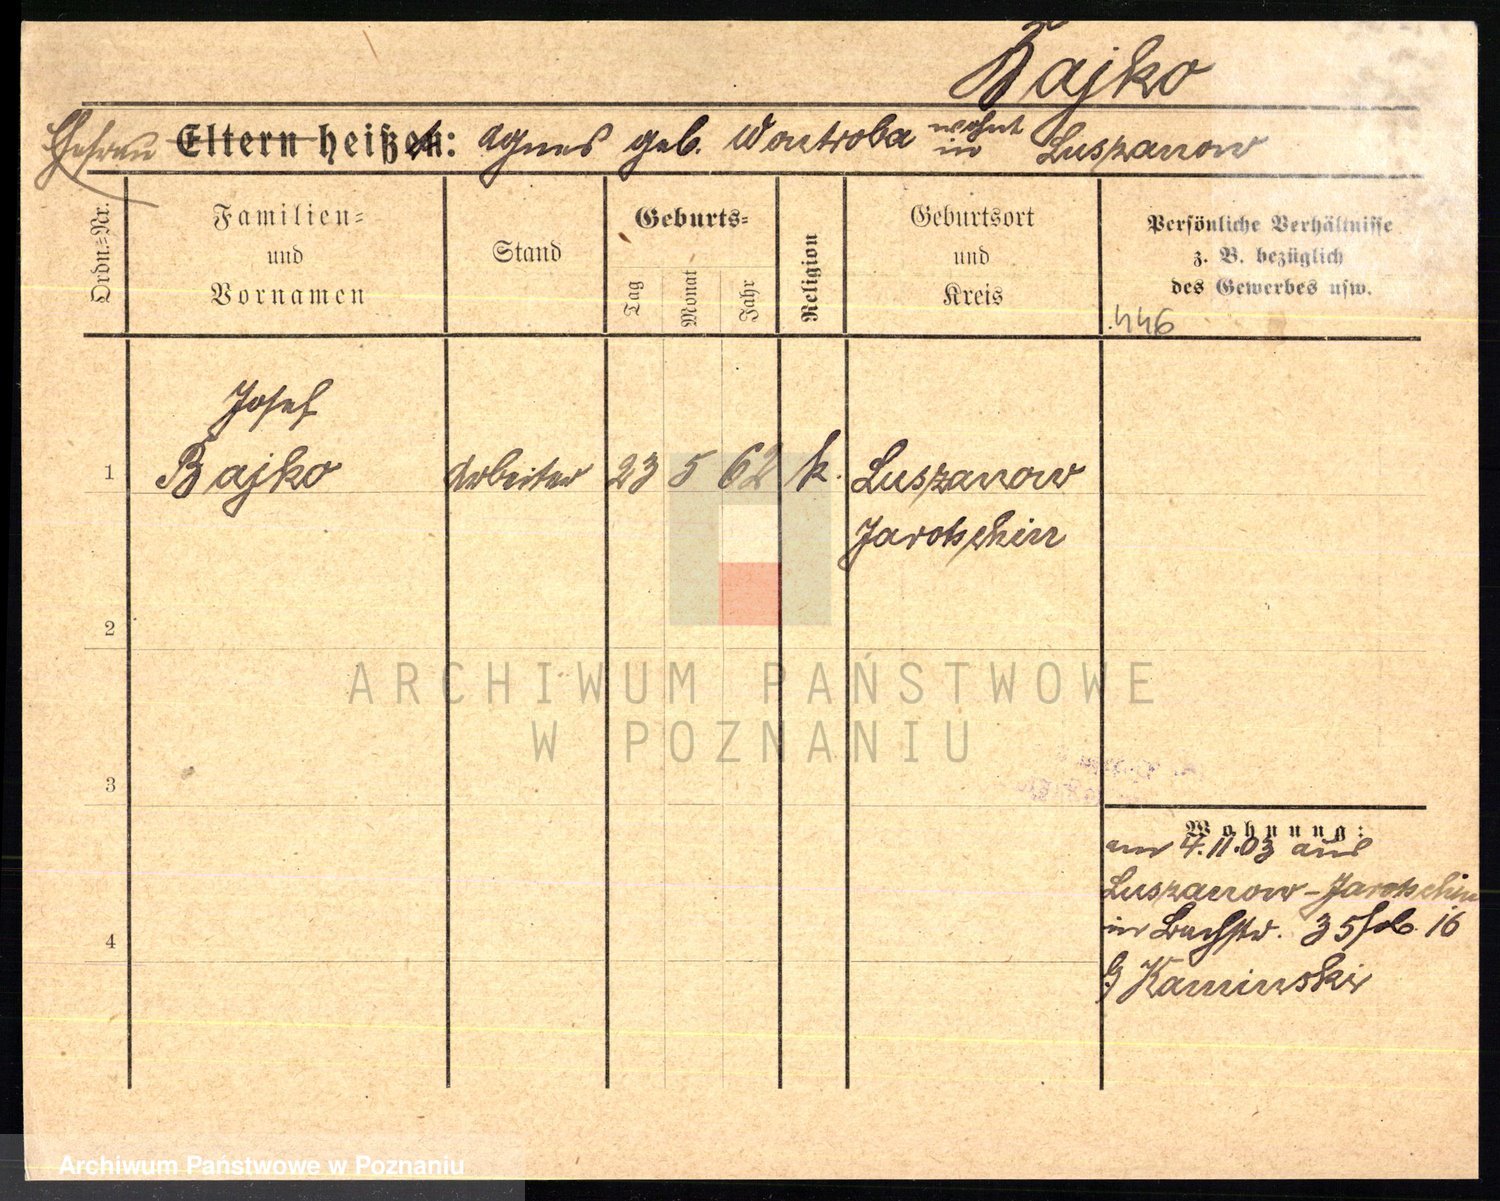 Bajko
Ehefrau Eltern heißen: Agnes geb. Wontroba wohnt in Luszanow
Ordn.=Nr.
Familien=
und
Vornamen
Stand
Geburts=
Tag
Monat
Jahr
Religion
Geburtsort
und
Kreis
Persönliche Verhältnisse
z. B. bezüglich
des Gewerbes usw.
446
Josef
1 Bajko Arbeiter 23 5 62 k. Luszanow
Jarotschin
2
ARCHIWUM PAŃSTWOWE
W POZNANIU
3
Wohnung:
am 4.11.03 aus
Luszanow-Jarotschin
in Bachstr. 16
4
Kaminski
Archiwum Państwowe w Poznaniu